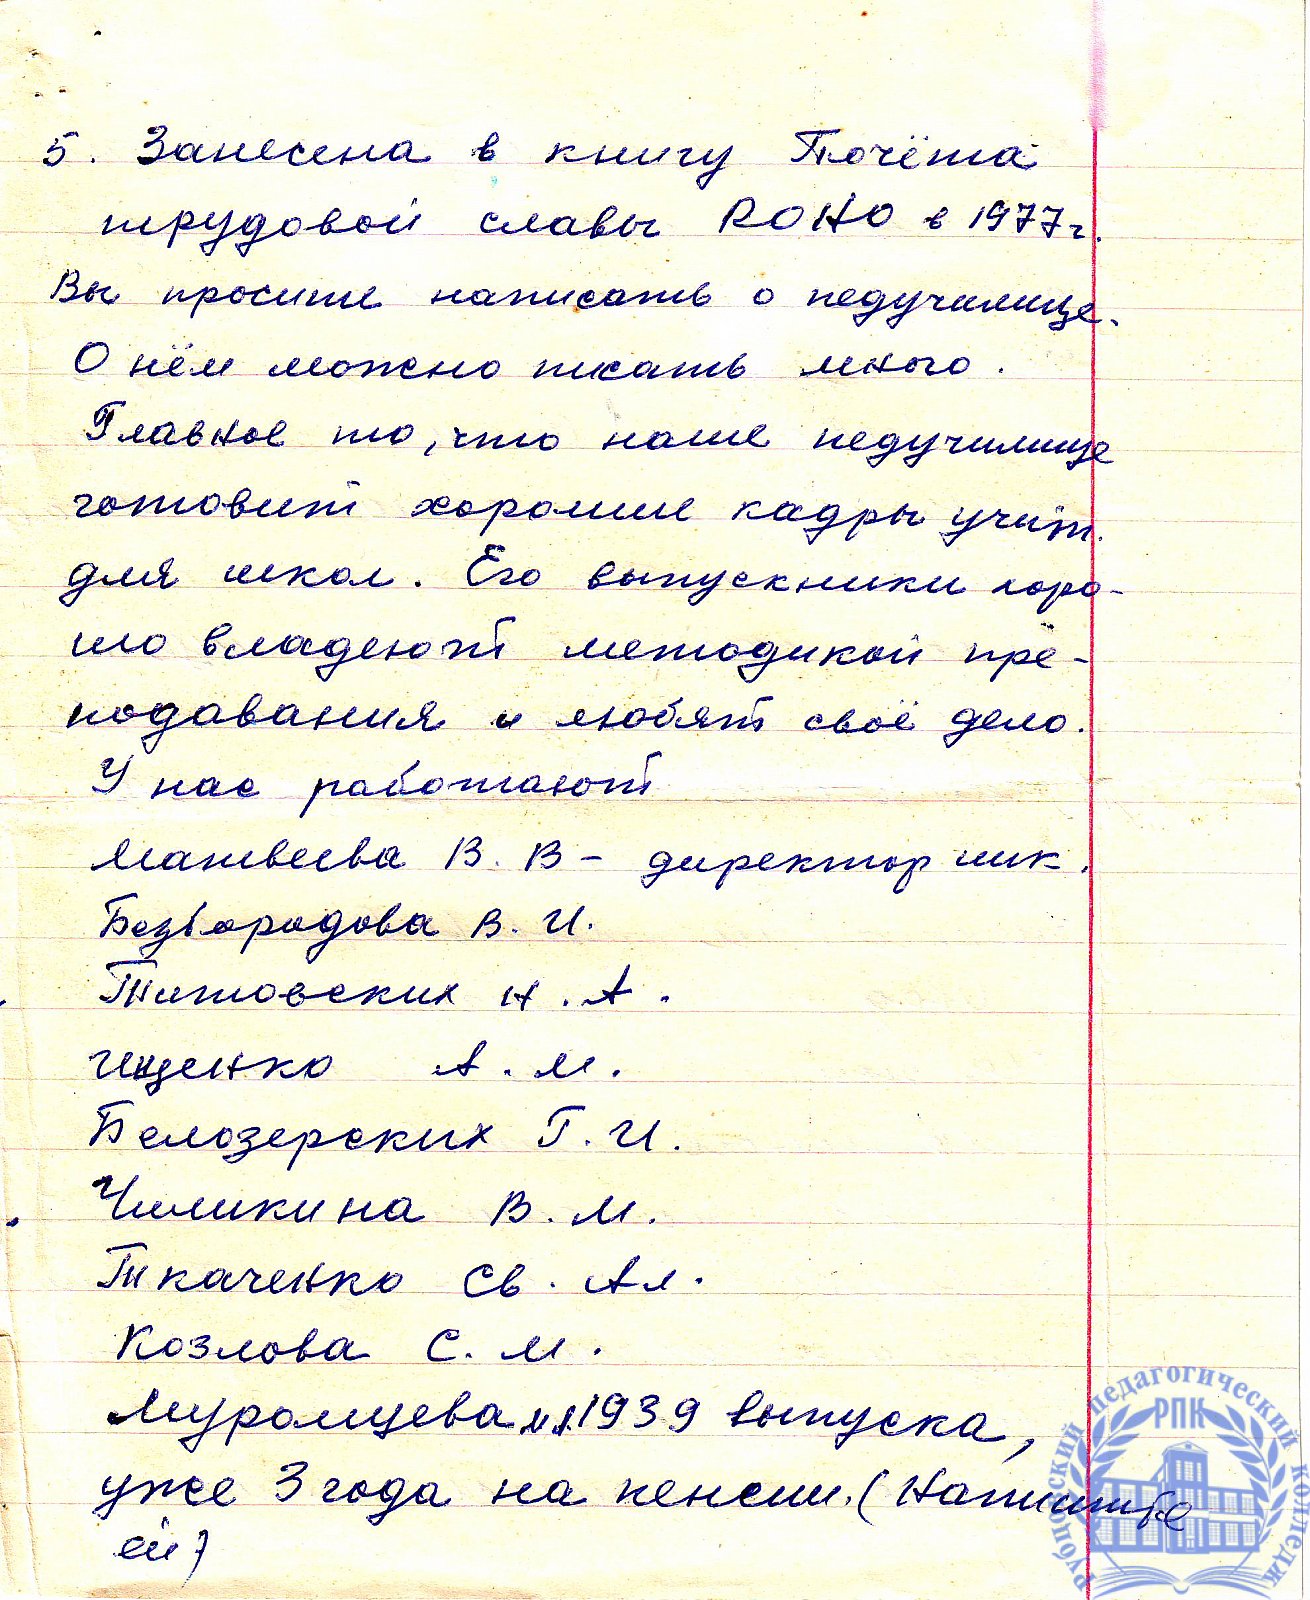 5. Занесена в книгу Почёта
трудовой славы РОНО в 1977 г.
Вы просите написать о педучилище.
О нём можно писать много.
Главное то, что наше педучилище
готовит хорошие кадры учит.
для школ. Его выпускники хоро-
шо владеют методикой пре-
подавания и любят своё дело.
У нас работают
Матвеева В. В – директор шк.
Безбородова В. И.
Титовских Н. А.
Ищенко А. М.
Белозерских Г. И.
Чиликина В. М.
Ткаченко Св. Ал.
Козлова С. М.
Муромцева 1939 выпуска,
уже 3 года на пенсии. (Напишите
ей)
Рубцовский педагогический колледж
РПК